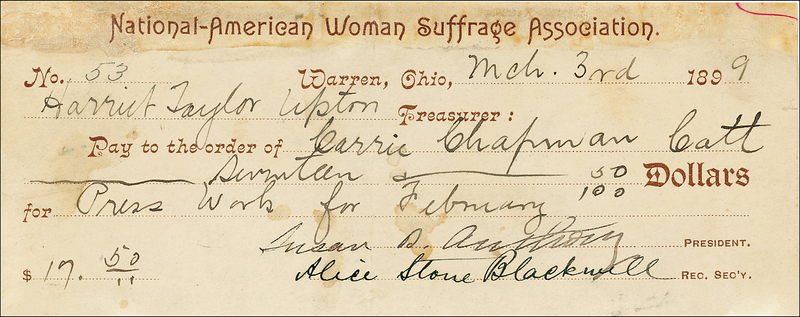 National-American Woman Suffrage Association.
No. 53 Warren, Ohio, Mch. 3rd 1899
Harriet Taylor Upton Treasurer:
Pay to the order of Carrie Chapman Catt
Seventeen 50/100 Dollars
for Press Work for February
Susan B. Anthony PRESIDENT.
$ 17. 50/" Alice Stone Blackwell REC. SEC'Y.